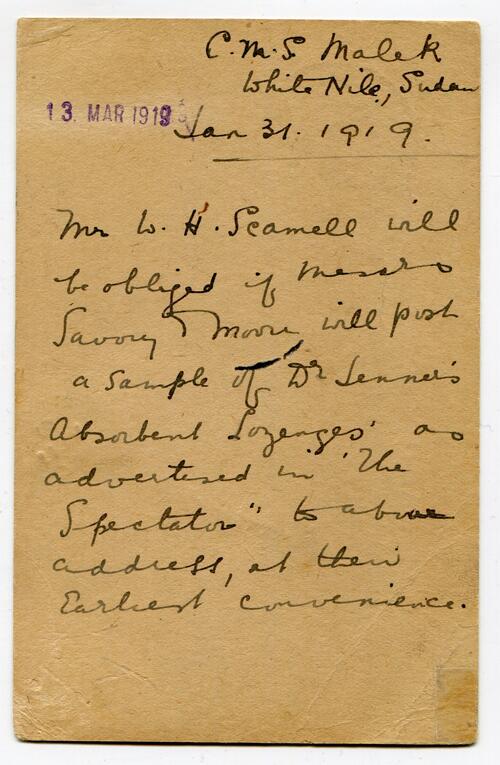 C.M.S Malek
White Nile, Sudan
13 MAR 1919
Jan 31. 1919.
Mr W. H. Scamell will
be obliged if Messrs
Savory & Moore will post
a sample of Dr Jenner's
Absorbent Lozenges' as
advertised in 'The
Spectator" to above
address, at their
Earliest convenience.